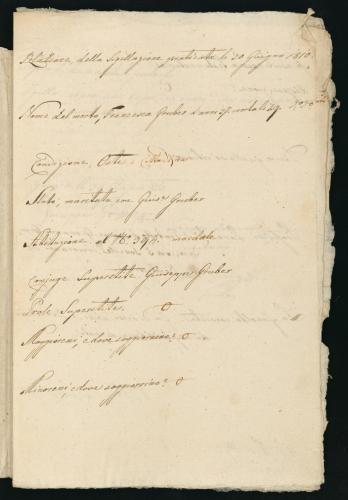 Relazione della Sigillazione praticata li 20 Giugno 1810.
Nome del morto, Francesca Gruber d'anni morta li 29
Condizione, Oste
Stato, maritata con Gius.e Gruber
Abitazione al N.o 394.
Conjuge Superstite Giuseppe Gruber
Prole Superstite. 0
Maggioreni, e dove soggiornino? 0
Minoreni, e dove soggiornino? 0